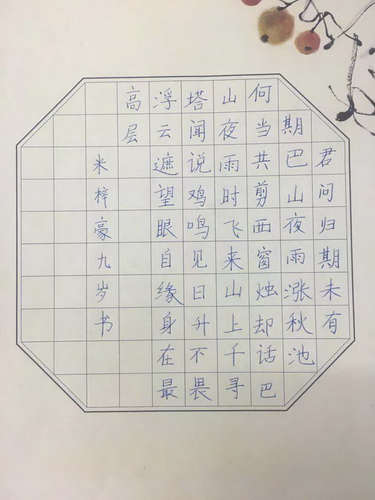 君问归期未有
期巴山夜雨涨秋池
何当共剪西窗烛却话巴
山夜雨时飞来山上千寻
塔闻说鸡鸣见日升不畏
浮云遮望眼自缘身在最
高层
米梓豪九岁书